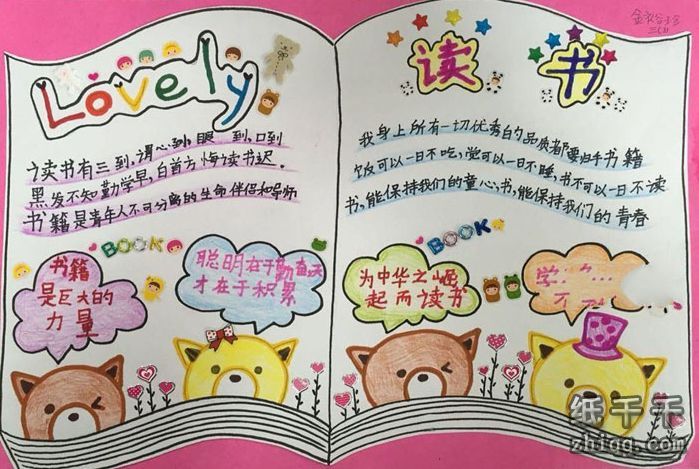 Lovely
读书有三到,谓心到,眼 到,口到
黑发不知勤学早,白首方悔读书迟。
书籍是青年人不可分离的生命伴侣和导师
BOOK
书籍
是巨大的
力量
聪明在于勤奋,天
才在于积累
读 书
我身上所有一切优秀的品质都要归于书 籍
饭可以一日不吃,觉可以一日不睡,书不可以一日不读
书,能保持我们的童心;书,能保持我们的青春
BOOK
为中华之崛
起而读书
学
不
纸千千
zhiqq.com